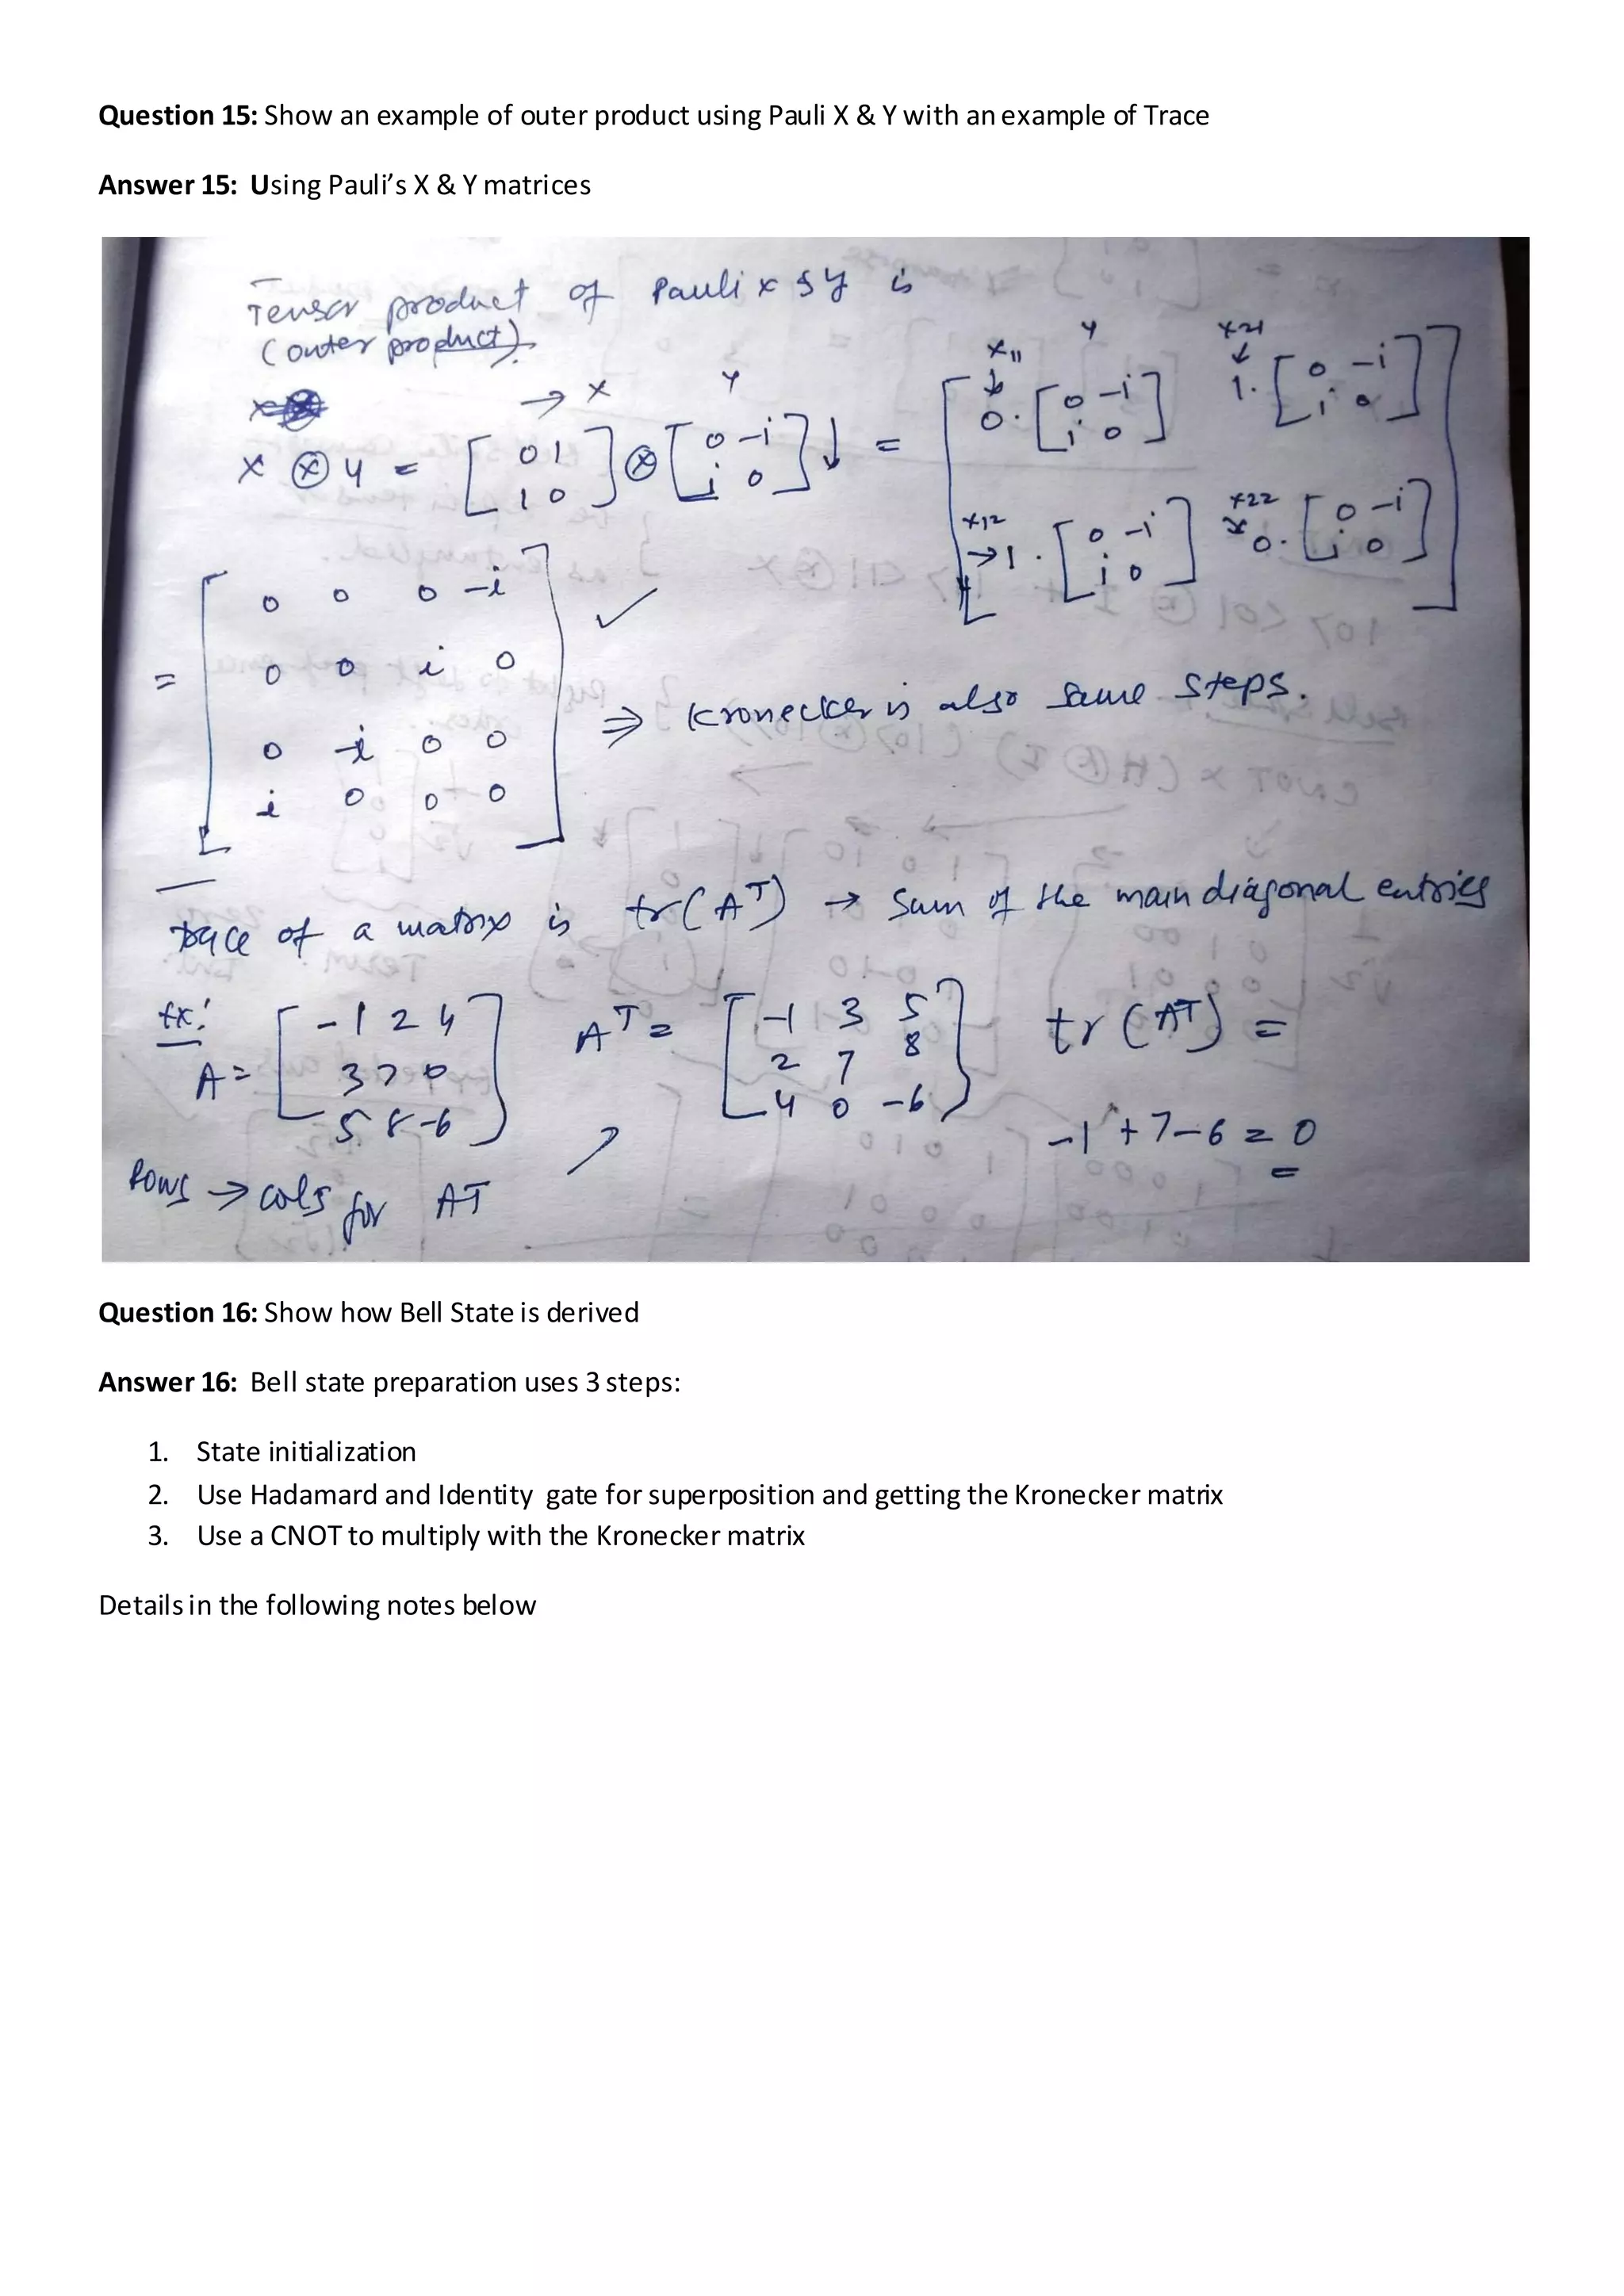 Question 15: Show an example of outer product using Pauli X & Y with an example of Trace
Answer 15: Using Pauli’s X & Y matrices
Tensor product of Pauli x & y is
(outer product).
→ X Y
X ⊗ Y = [ 0 1 ] ⊗ [ 0 -i ] ↓ = [ X11 ↓ 0 . Y [ 0 -i ] X21 ↓ 1 . [ 0 -i ] ]
1 0 i 0 i 0 i 0
X12 → 1 . [ 0 -i ] X22 0 . [ 0 -i ]
i 0 i 0
= [ 0 0 0 -i ] ✓
0 0 i 0
⇒ Kronecker is also same steps.
0 -i 0 0
i 0 0 0
Trace of a matrix is tr(AT) → Sum of the main diagonal entries
Ex:
A = [ -1 2 4 ] AT = [ -1 3 5 ] tr(AT) =
3 7 0 2 7 8
5 8 -6 4 0 -6
-1 + 7 - 6 = 0
Rows → cols for AT
Question 16: Show how Bell State is derived
Answer 16: Bell state preparation uses 3 steps:
1. State initialization
2. Use Hadamard and Identity gate for superposition and getting the Kronecker matrix
3. Use a CNOT to multiply with the Kronecker matrix
Details in the following notes below